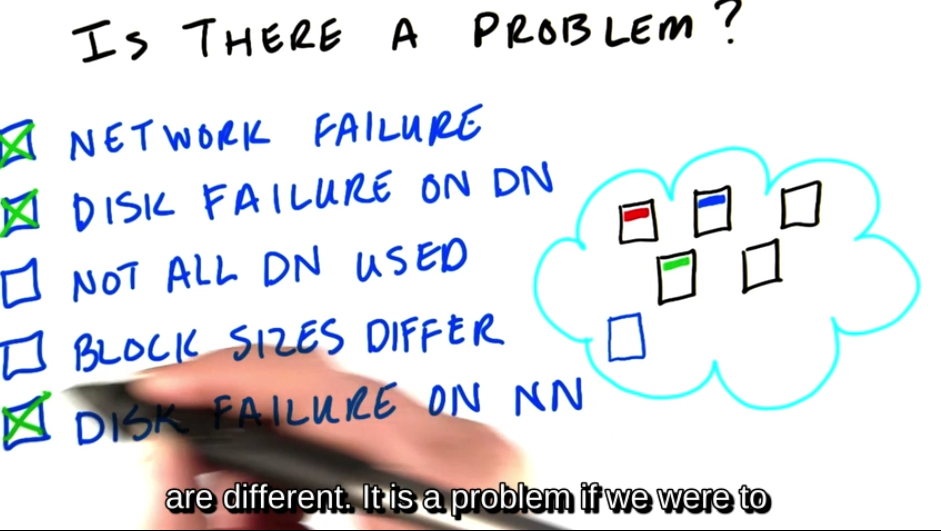 IS THERE A PROBLEM?
NETWORK FAILURE
DISK FAILURE ON DN
NOT ALL DN USED
BLOCK SIZES DIFFER
DISK FAILURE ON NN
are different. It is a problem if we were to